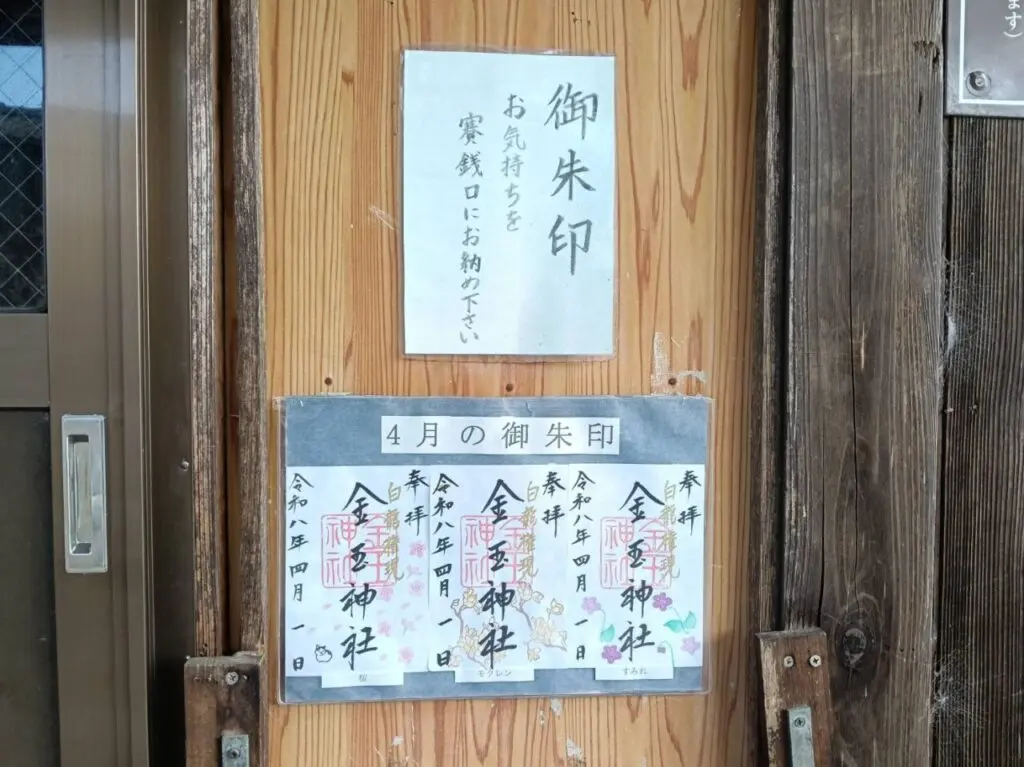 ます)
御朱印
お気持ちを
賽銭口にお納め下さい
4月の御朱印
奉拝
白龍権現
金玉神社
令和八年四月一日
すみれ
奉拝
白龍権現
金玉神社
令和八年四月一日
モクレン
奉拝
白龍権現
金玉神社
令和八年四月一日
桜